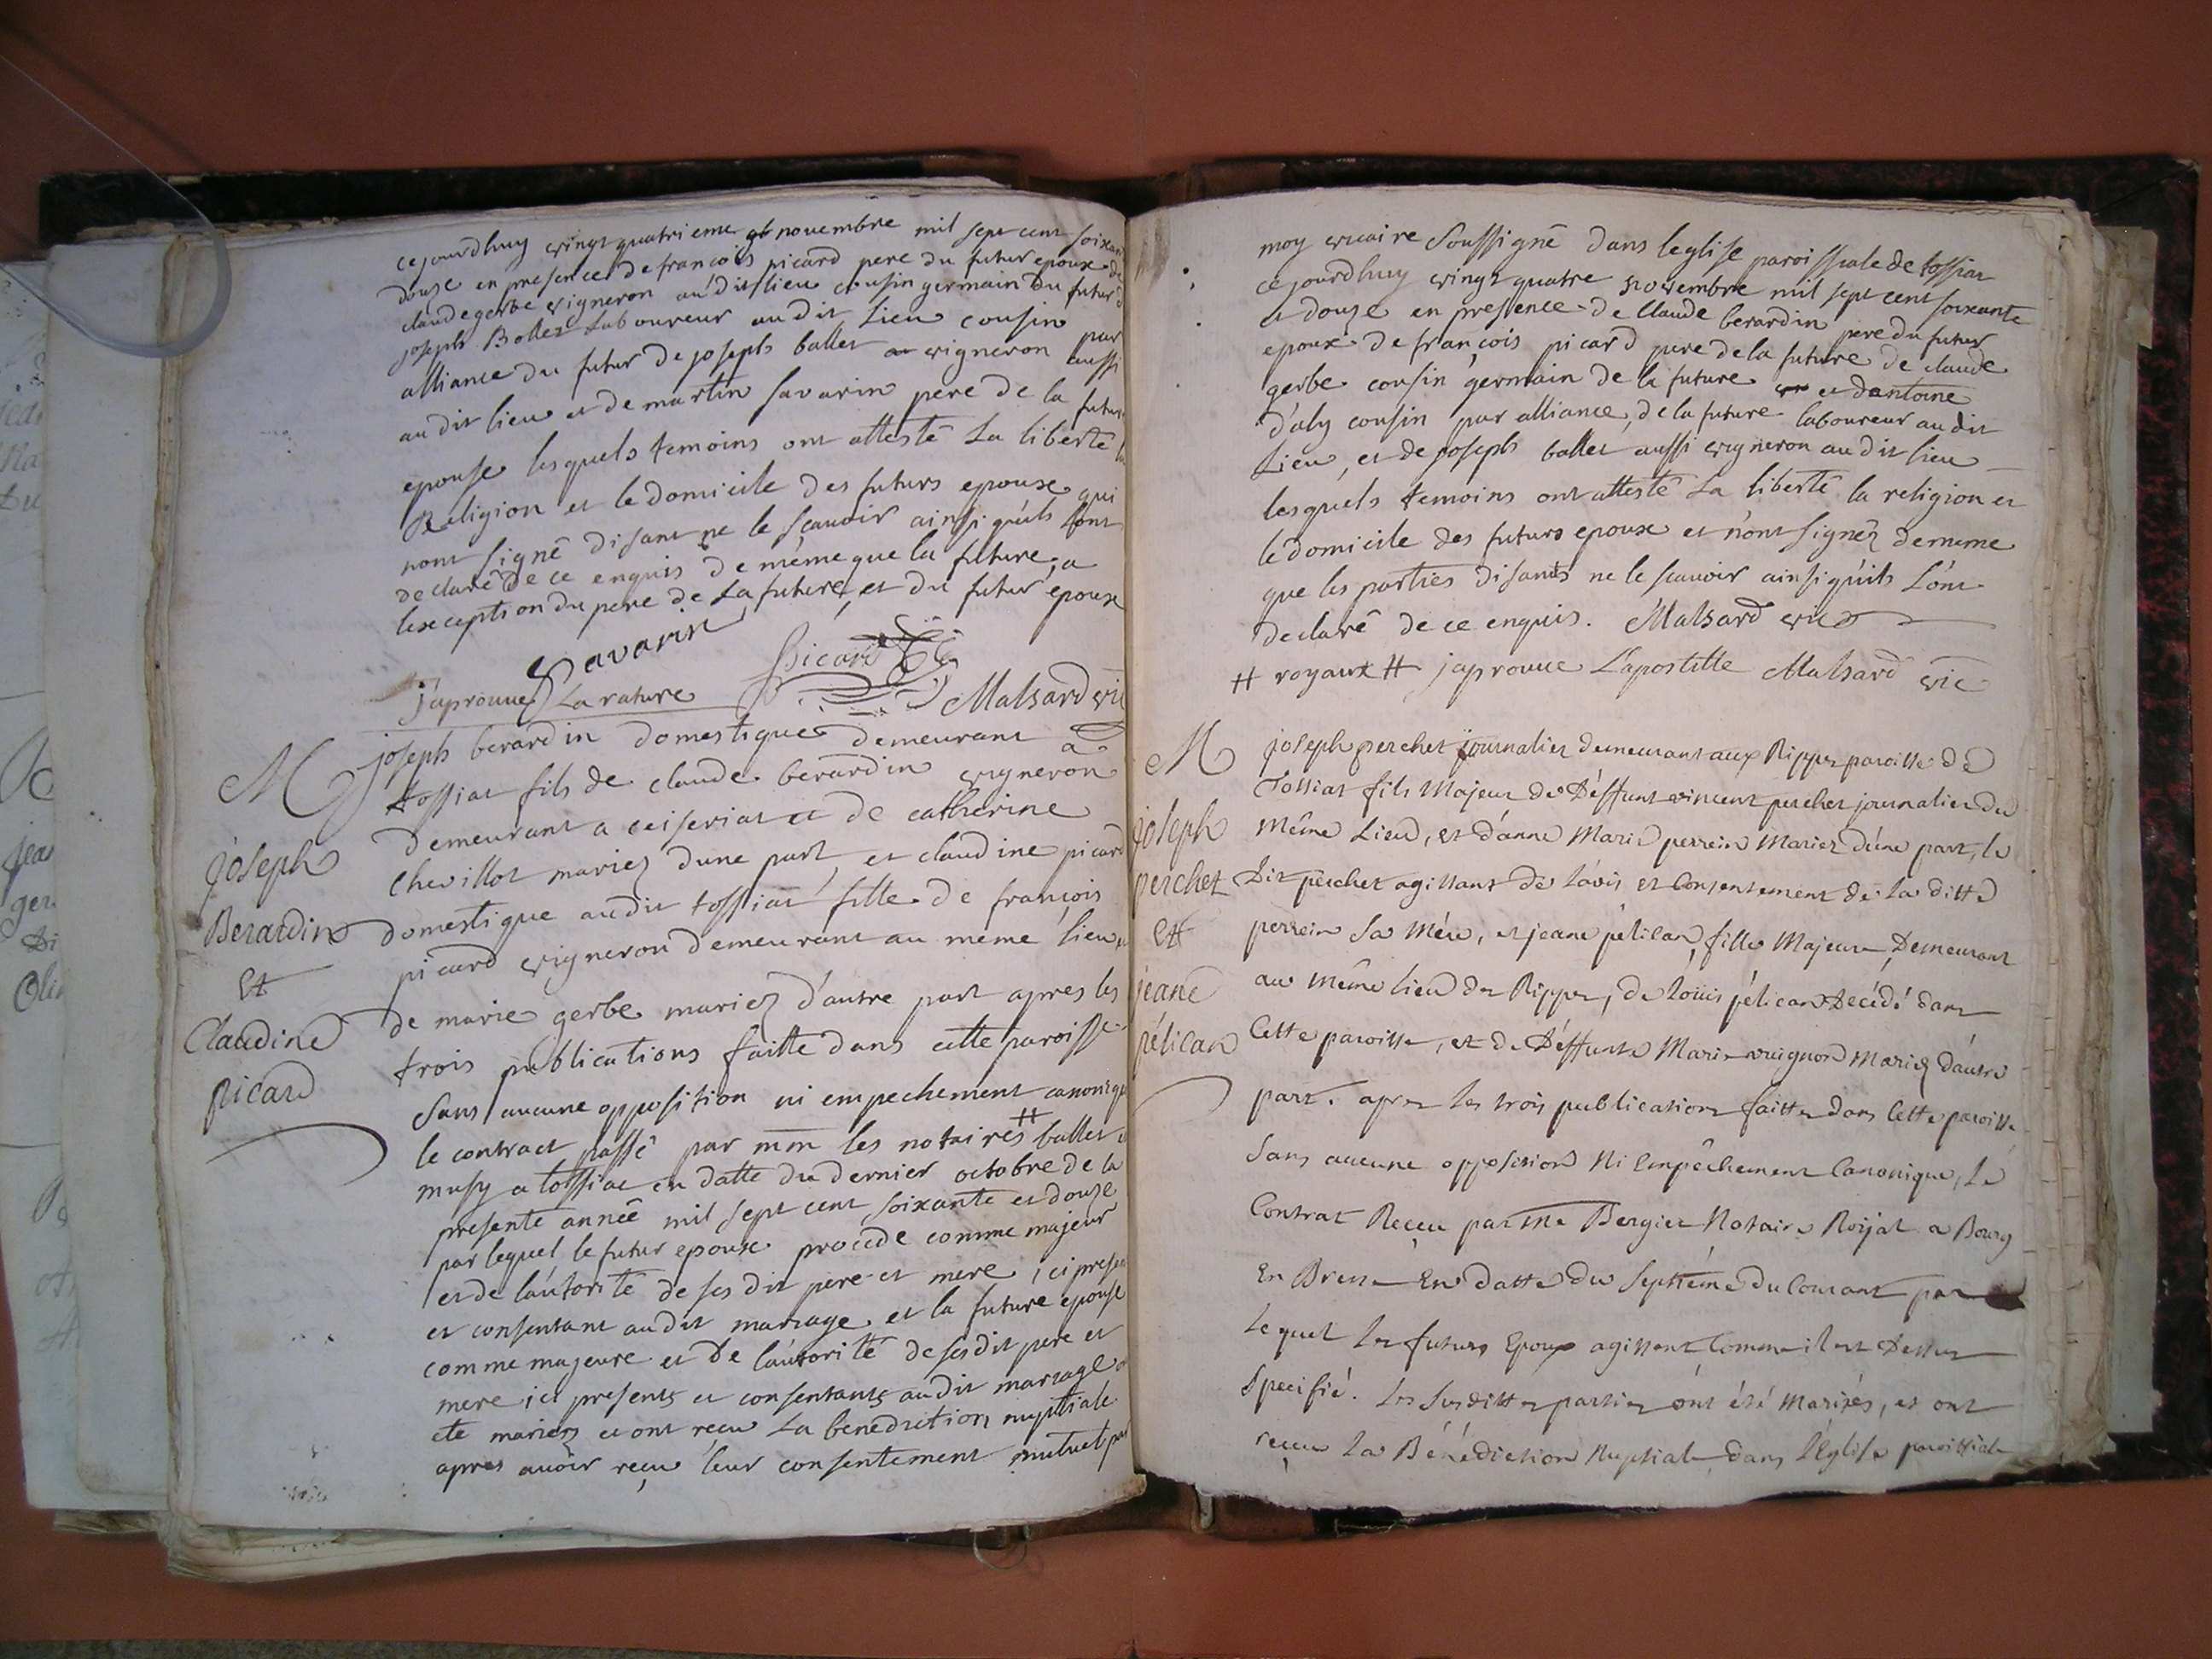 cejourdhuy vingt quatrieme novembre mil sept cent soixan
douze en presence de francois picard pere du futur epoux de
claude gerbe vigneron audit lieu cousin germain du futur d
joseph Bollet Laboureur audit Lieu cousin par
alliance du futur de joseph ballet vigneron aussi
audit lieu et de martin savarin pere de la future
epouse lesquels temoins ont attesté La liberté la
Religion et le domicile des futurs epoux qui
nont signé disant ne le sçavoir ainsi quils Lont
declaré de ce enquis de même que la future, a
lexception du pere de La future, et du futur epoux
Savarin
Picard
japrouve La rature
Malsard vic
M
joseph berardin domestique demeurant a
tossiat fils de claude berardin vigneron
demeurant a ceiseriat et de catherine
chevillot mariez dune part, et claudine picard
domestique audit tossiat fille de françois
picard vigneron demeurant au meme lieu, et
de marie gerbe mariez d'autre part apres les
trois publications faitte dans cette paroisse
sans aucune opposition ni empechement canonique
le contract passé par mm les notaires # ballet et
musy a tossiat en datte du dernier octobre de la
presente année mil sept cent soixante et douze
par lequel le futur epoux procede comme majeur
et de l'autorité de ses dit pere et mere ici presen
et consentant audit mariage et la future epouse
comme majeure et de l'autorité de ses dit pere et
mere ici presents et consentants audit mariage on
eté mariez et ont recu La benediction nuptiale
apres avoir reçu leur consentement mutuel par
joseph
Berardin
Et
Claudine
picard
moy vicaire Soussigné dans leglise paroissiale de tossiat
cejourdhuy vingt quatre novembre mil sept cent soixante
et douze en presence de Claude berardin pere du futur
epoux de françois picard pere de la future de claude
gerbe cousin germain de la future et dantoine
d'aly cousin par alliance, de la future laboureur audit
Lieu, et de joseph ballet aussi vigneron audit lieu
lesquels temoins ont attesté La liberté la religion et
le domicile des futurs epoux et n'ont signéz de meme
que les parties disants ne le scavoir ainsi qu'ils L'ont
declaré de ce enquis. Malsard vic
# royaux # japrouve L'apostille Malsard vic
M
joseph perchet journalier demeurant aux Rippes paroisse de
Tossiat fils Majeur de Déffunt vincent perchet journalier du
Même Lieu, et d'anne Marie perrein Mariez d'une part, le
Dit perchet agissant de l'avis et Consentement de la ditte
perrein Sa Mére, et jeane pélican, fille Majeure Demeurant
au même lieu des Rippes, de Loüis pélican Decédé dans
Cette paroisse, et de Déffunte Marie vuignon Mariez d'autre
part. apres les trois publications faittes dans Cette paroisse
Sans aucune opposition Ni Empêchement Canonique, Le
Contrat Reçeu par Me Bergier Notaire Roijal a Bourg
En Bresse En datte du Septiéme du Courant par
Lequel les futurs Epoux agissent Comme il est Dessus
Specifié. Les Susdittes parties ont été Mariées, et ont
reçeu La Bénédiction Nuptiale dans l'Eglise paroissiale
joseph
perchet
Et
jeane
pélican